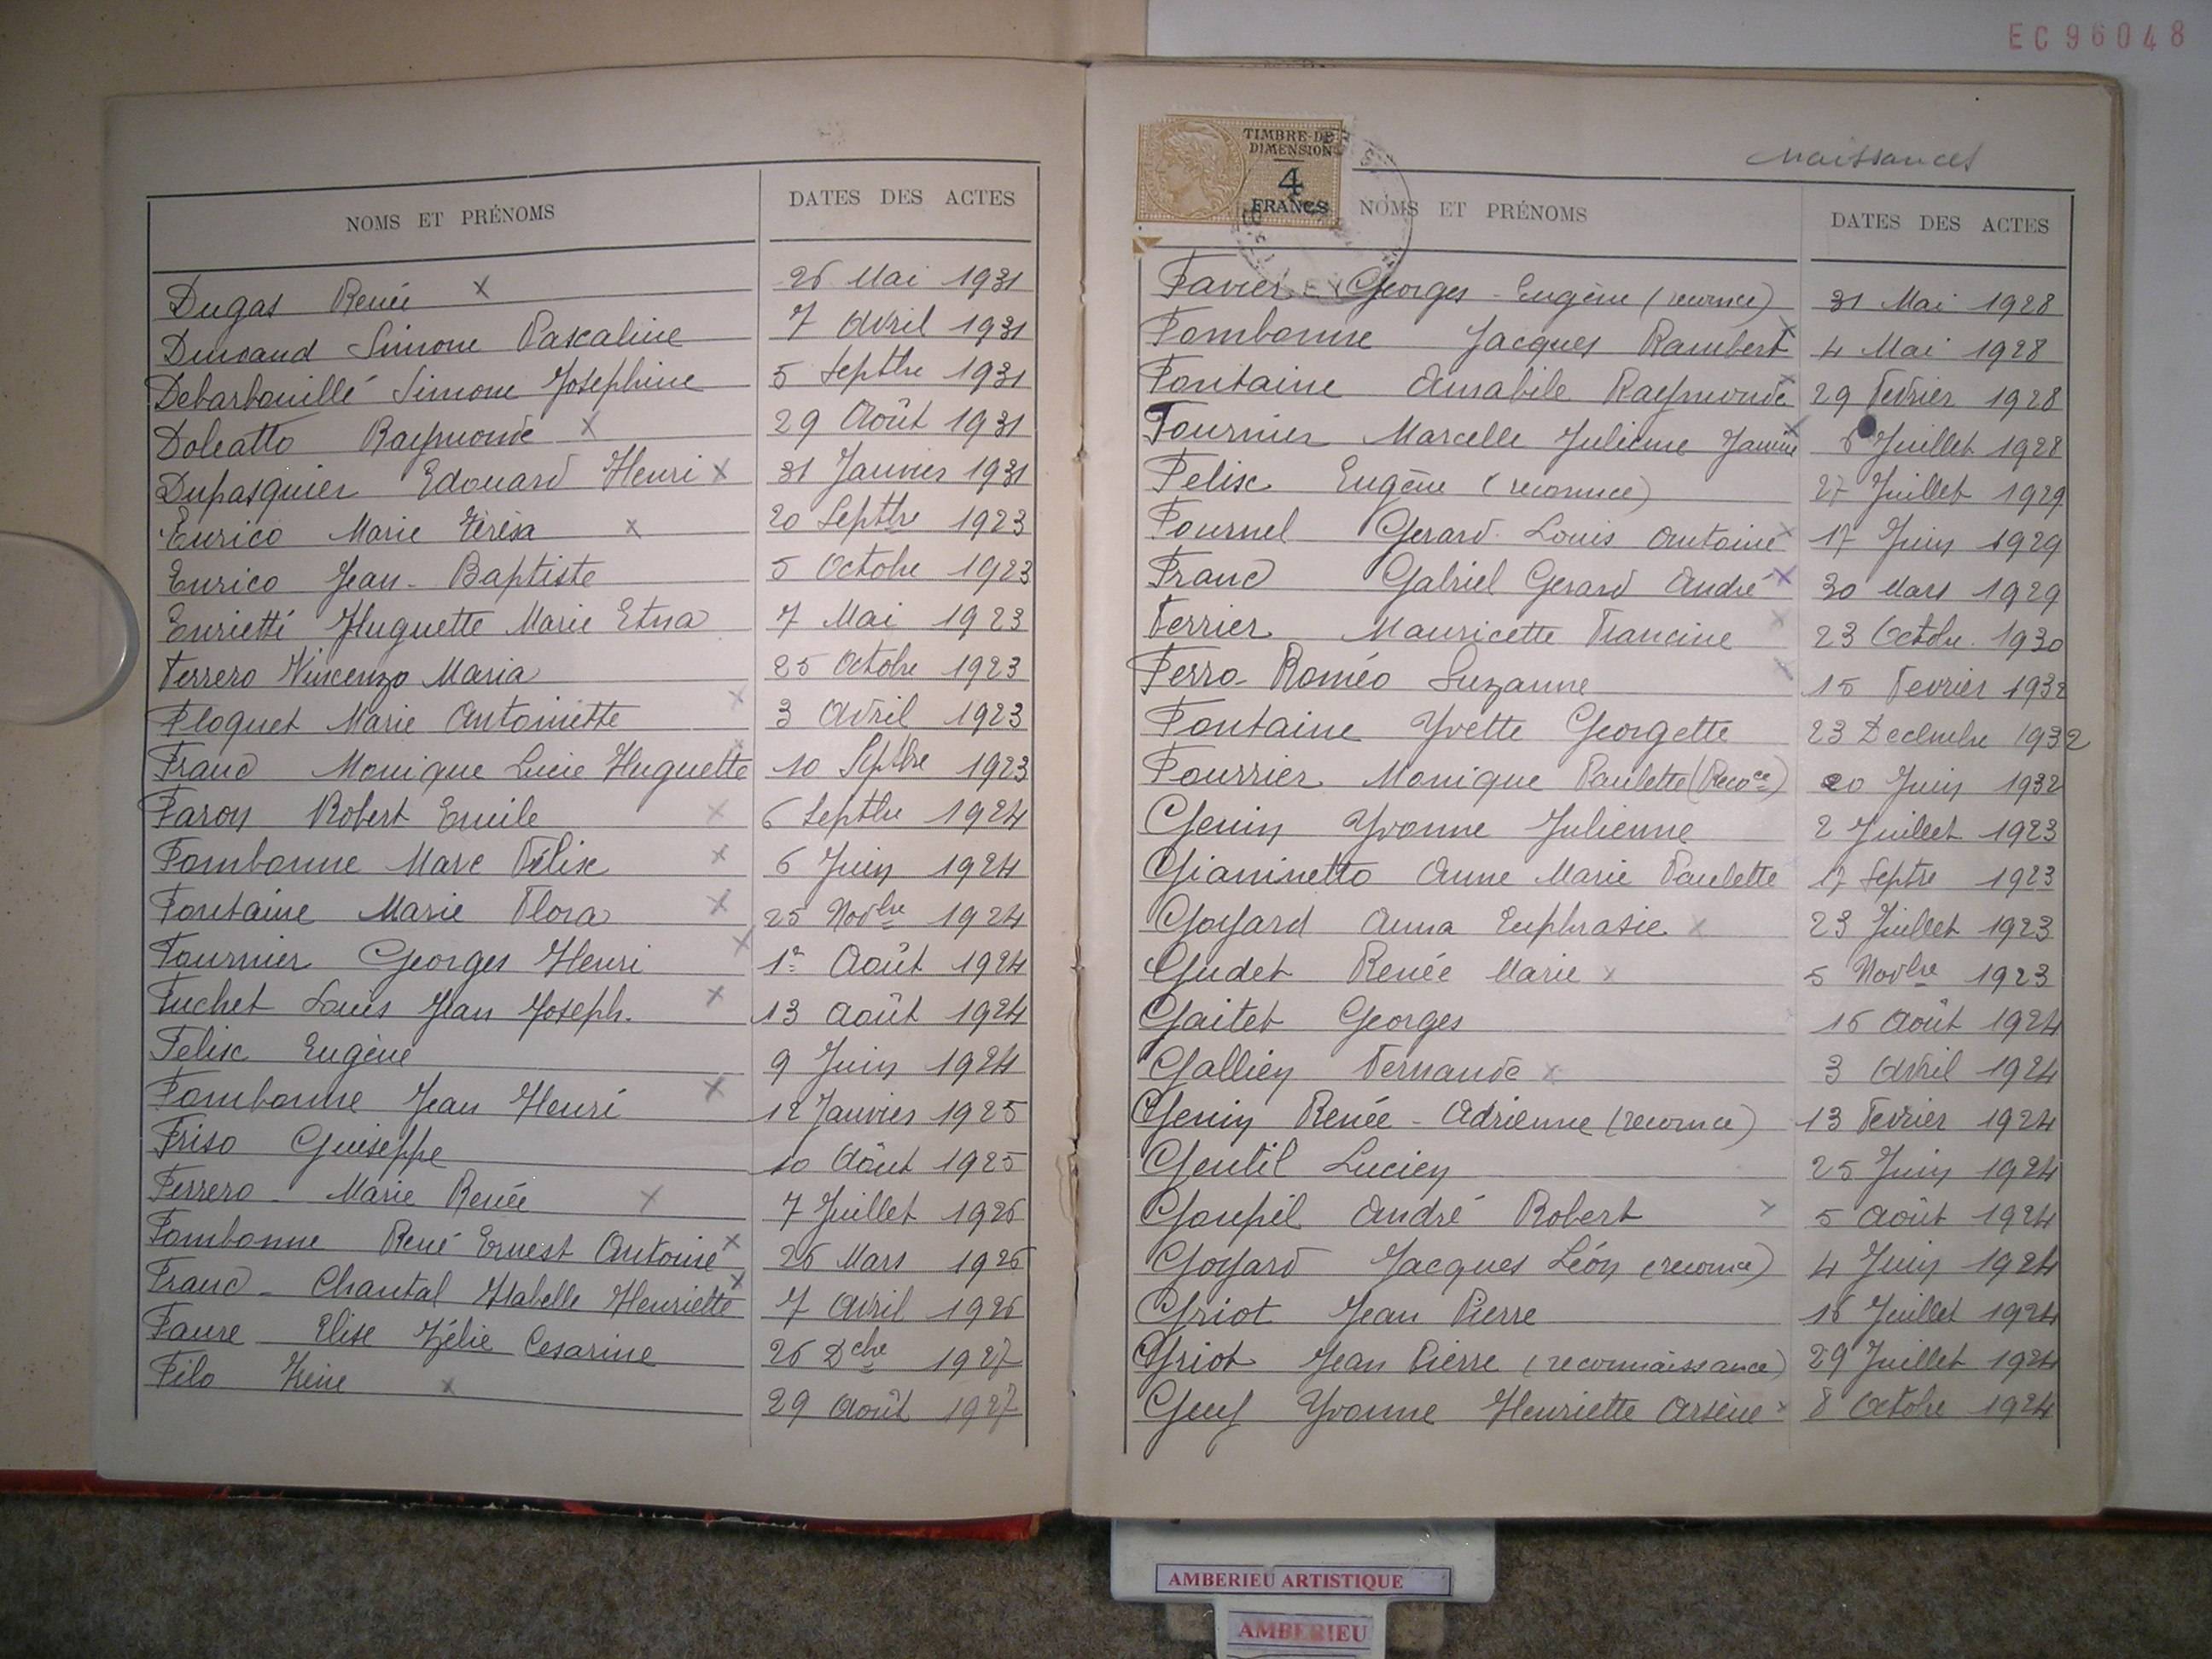 EC96048
NOMS ET PRÉNOMS DATES DES ACTES
Dugas Renée x 26 Mai 1931
Durand Simone Pascaline 7 Avril 1931
Debarbouillé Simone Josephine 5 Septbre 1931
Doleatto Raymonde x 29 Août 1931
Dupasquier Edouard Henri x 31 Janvier 1931
Enrico Marie Térésa x 20 Septbre 1923
Enrico Jean-Baptiste 5 Octobre 1923
Enrietti Huguette Marie Etna 7 Mai 1923
Ferrero Vincenzo Maria 25 Octobre 1923
Floquet Marie Antoinette x 3 Avril 1923
Franc Monique Lucie Huguette x 10 Septbre 1923
Faron Robert Emile x 6 Septbre 1924
Fombonne Marc Félix x 6 Juin 1924
Fontaine Marie Flora x 25 Novbre 1924
Fournier Georges Henri x 1er Août 1924
Fuchet Louis Jean Joseph. x 13 Août 1924
Felix Eugène 9 Juin 1924
Fombonne Jean Henri x 12 Janvier 1925
Friso Guiseppe 10 Août 1925
Ferrero - Marie Renée x 7 Juillet 1926
Fombonne René Ernest Antoine x 26 Mars 1926
Franc - Chantal Isabelle Henriette x 7 Avril 1926
Faure Elise Zélie Cesarine 26 Dcbre 1927
Filo x 29 Août 1927
TIMBRE DE DIMENSION
4
FRANCS
Naissances
NOMS ET PRÉNOMS DATES DES ACTES
Favier Georges-Eugène (reconnce) 31 Mai 1928
Fombonne Jacques Rambert x 4 Mai 1928
Fontaine Amabile Raymonde x 29 Fevrier 1928
Fournier Marcelle Julienne Janine x 6 Juillet 1928
Felix Eugène (reconnce) 27 Juillet 1929
Fournel Gerard Louis Antoine x 17 Juin 1929
Franc Gabriel Gerard André x 30 Mars 1929
Ferrier Mauricette Francine x 23 Octobre 1930
Ferro-Roméo Suzanne x 15 Fevrier 1932
Fontaine Yvette Georgette 23 Decembre 1932
Fourrier Monique Paulette (Recoce) 20 Juin 1932
Genin Yvonne Julienne 2 Juillet 1923
Gianinetto Anne Marie Paulette 17 Septre 1923
Goyard Anna Euphrasie x 23 Juillet 1923
Gudet Renée Marie x 5 Novbre 1923
Gaitet Georges 16 Août 1924
Gallien Fernande x 3 Avril 1924
Genin Renée - Adrienne (reconnce) 13 Fevrier 1924
Gentil Lucien 25 Juin 1924
Goupil André Robert x 5 Août 1924
Goyard Jacques Léon (reconnce) 4 Juin 1924
Griot Jean Pierre 16 Juillet 1924
Griot Jean Pierre (reconnaissance) 29 Juillet 1924
Guy Yvonne Henriette Arsène x 8 Octobre 1924
AMBERIEU ARTISTIQUE
AMBERIEU